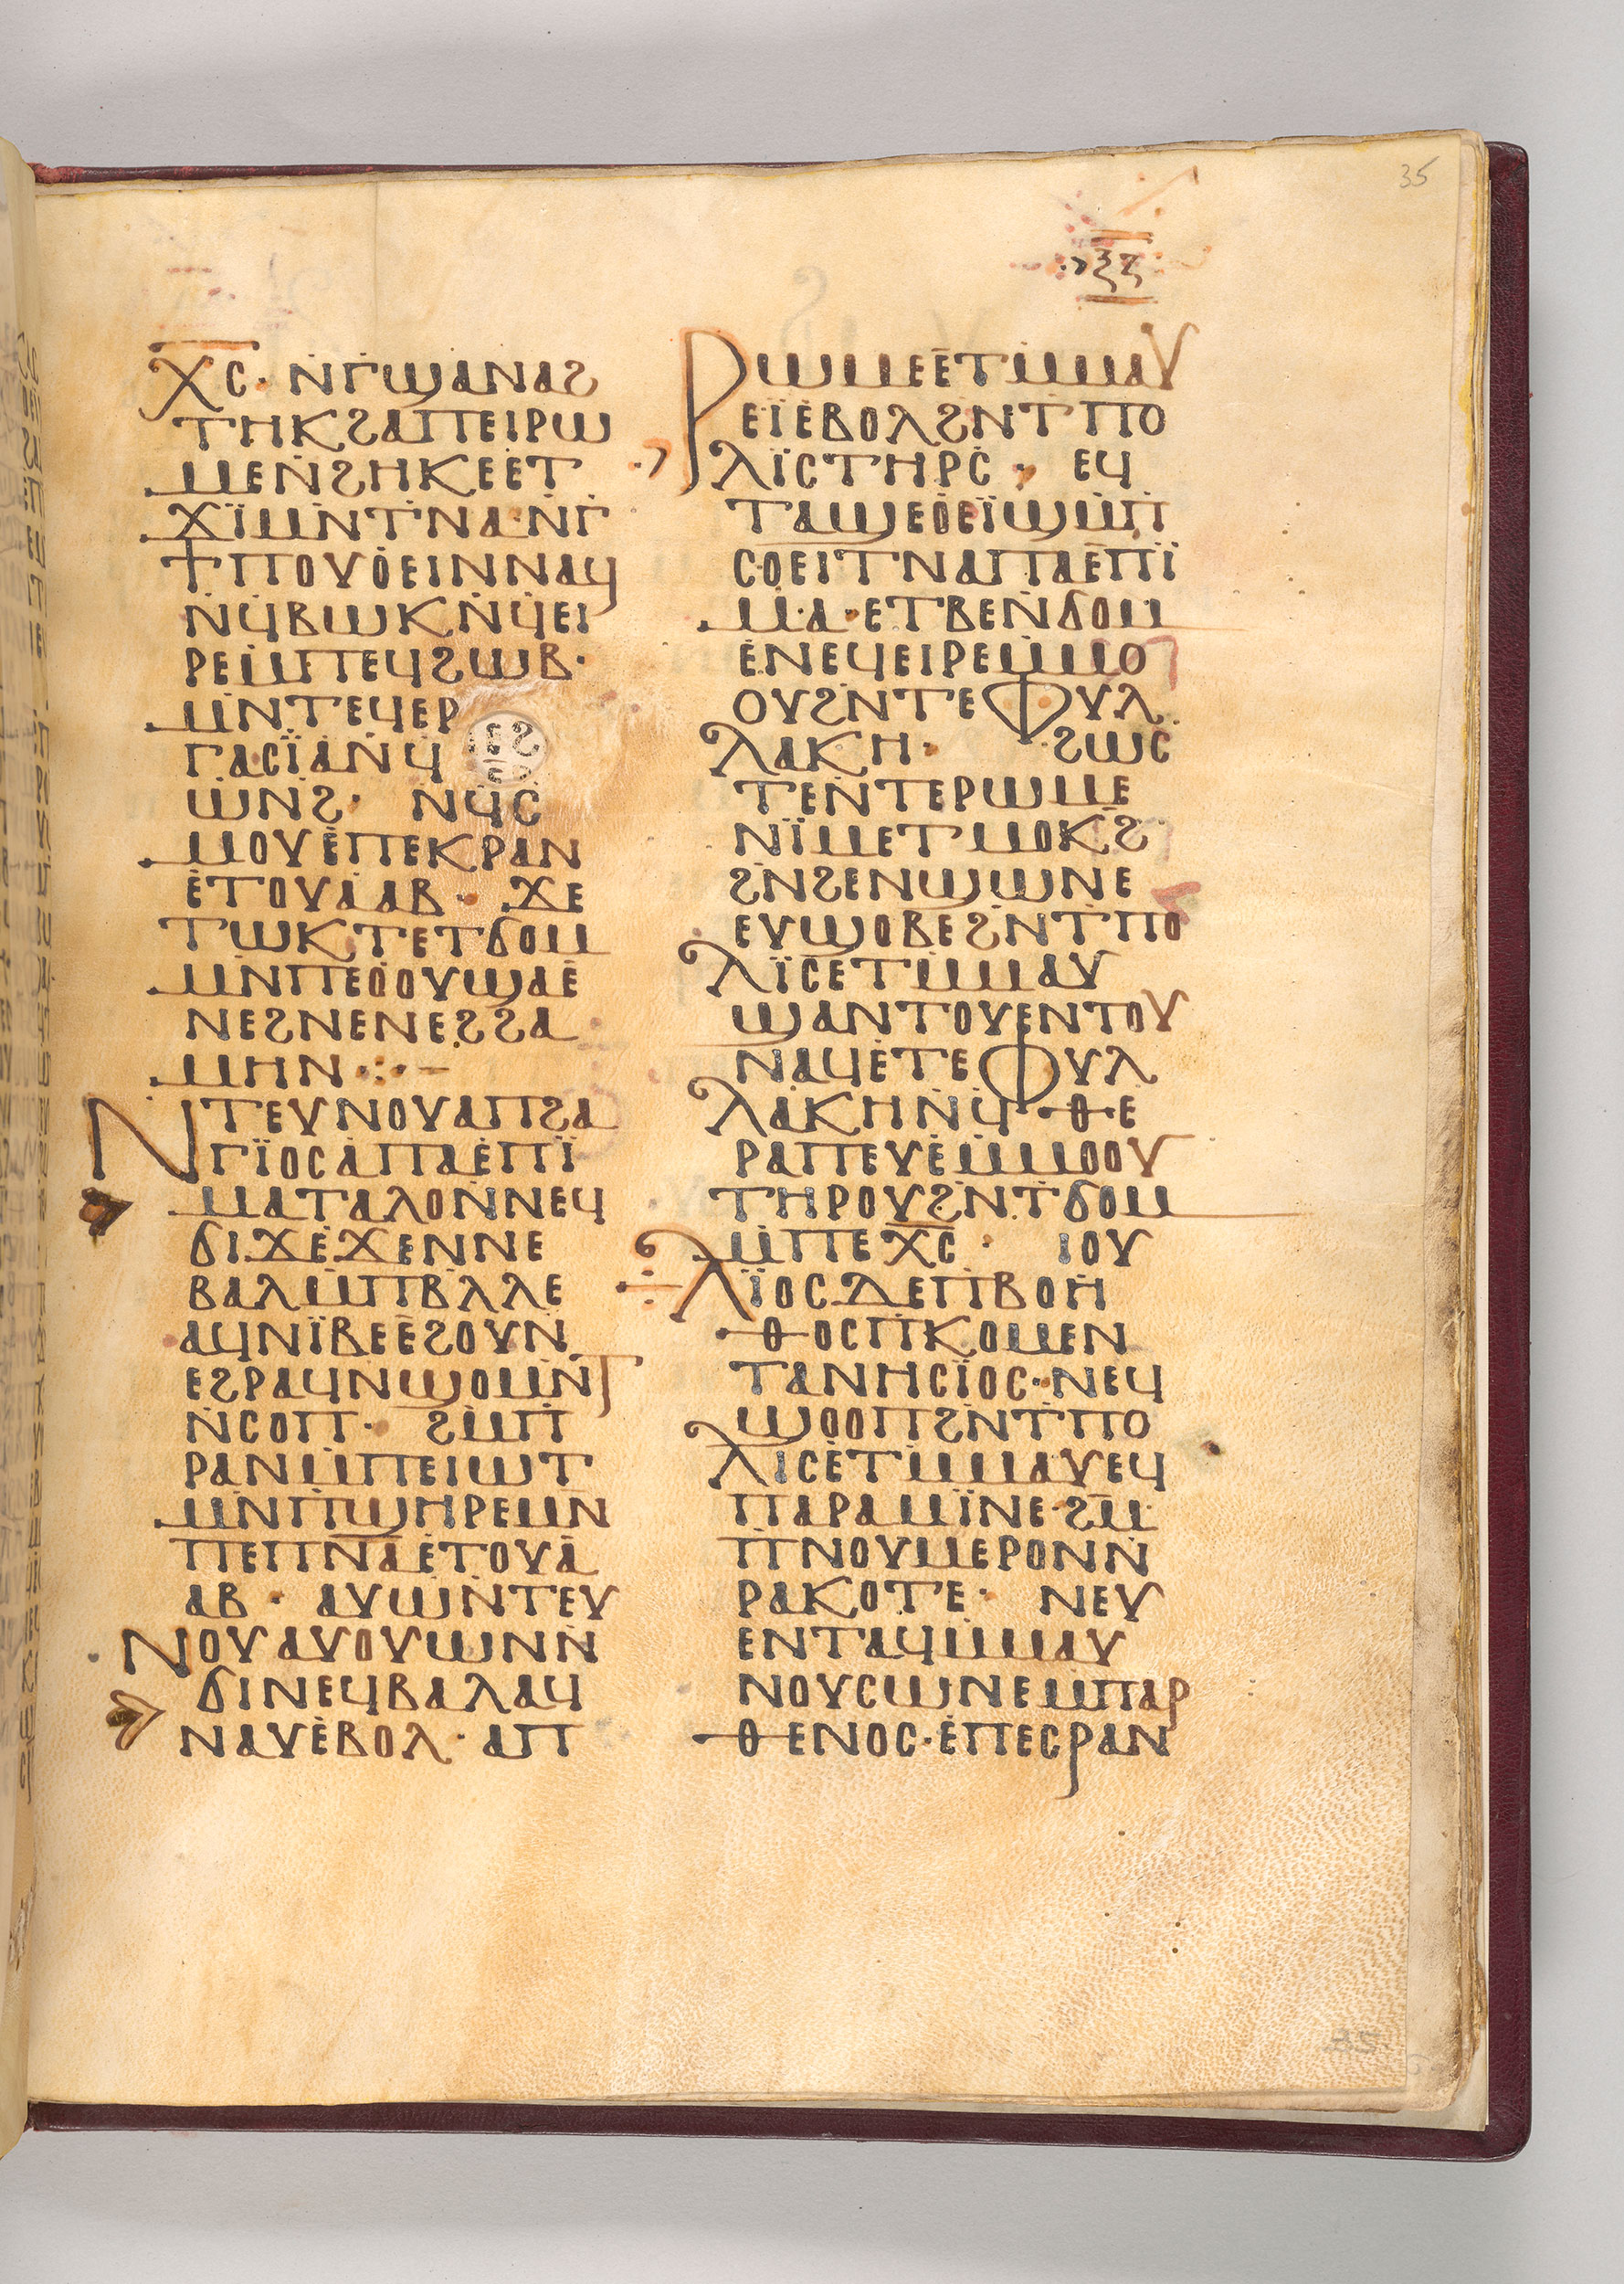 35
ⲝⲍ
ⲭ̅ⲥ̅· ⲛ̇ⲅ̇ϣⲁⲛⲁϩ
ⲧⲏⲕϩⲁⲡⲉⲓⲣⲱ
ⲙⲉⲛ̇ϩⲏⲕⲉⲉ̇ⲧ
ϫⲓ̈ⲙ̇ⲛⲧ̇ⲛⲁ·ⲛ̇ⲅ̇
ϯⲡⲟⲩⲟ̇ⲉⲓⲛⲛⲁϥ
ⲛ̇ϥⲃⲱⲕⲛ̇ϥⲉⲓ
ⲣⲉⲙ̇ⲡⲉϥϩⲱⲃ·
ⲙ̇ⲛⲧⲉϥⲉⲣ
ⲅⲁⲥⲓ̈ⲁ̇ⲛ̇ϥ
ⲱ̇ⲛϩ̇· ⲛϥⲥ̇
ⲙⲟⲩⲉ̇ⲡⲉⲕⲣⲁⲛ
ⲉ̇ⲧⲟⲩⲁ̇ⲁⲃ· ϫⲉ
ⲧⲱⲕⲧⲉⲧϭⲟⲙ
ⲙ̇ⲛⲡⲉⲟ̇ⲟⲩϣⲁⲉ̇
ⲛⲉϩⲛⲉⲛⲉϩϩⲁ
ⲙⲏⲛ·:·–
ⲛⲧⲉⲩⲛⲟⲩⲁⲡϩⲁ
ⲅⲓ̈ⲟⲥⲁ̇ⲡⲁⲉ̇ⲡⲓ̈
ⲙⲁⲧⲁⲗⲟⲛ̇ⲛⲉϥ
ϭⲓϫⲉ̇ϫⲉⲛⲛⲉ
ⲃⲁⲗⲙ̇ⲡⲃ̇ⲗⲗⲉ
ⲁϥⲛⲓ̈ⲃⲉⲉ̇ϩⲟⲩⲛ
ⲉϩⲣⲁϥⲛϣⲟⲙ̇ⲛⲧ
ⲛ̇ⲥⲟⲡ· ϩⲙ̇ⲡ̇
ⲣⲁⲛⲙ̇ⲡⲉⲓⲱⲧ
ⲙ̇ⲛⲡ̇ϣⲏⲣⲉⲙ̇ⲛ
ⲡⲉⲡ̅ⲛ̅ⲁ̅ⲉ̇ⲧⲟⲩⲁ̇
ⲁⲃ· ⲁⲩⲱⲛ̇ⲧⲉⲩ
ⲛⲟⲩⲁⲩⲟⲩⲱⲛⲛ̇
ϭⲓⲛⲉϥⲃⲁⲗⲁϥ
ⲛⲁⲩⲉ̇ⲃⲟⲗ· ⲁⲡ
ⲣⲱⲙⲉⲉ̇ⲧⲙ̇ⲙⲁⲩ
ⲉⲓ̈ⲉ̇ⲃⲟⲗϩⲛⲧ̇ⲡⲟ
ⲗⲓ̈ⲥⲧⲏⲣⲥ̇· ⲉϥ
ⲧⲁϣⲉⲟ̇ⲉⲓ̈ϣⲙ̇ⲡ̇
ⲥⲟⲉⲓⲧⲛⲁⲡⲁⲉ̇ⲡⲓ̈
ⲙⲁ·ⲉⲧⲃⲉⲛ̇ϭⲟⲙ
ⲉ̇ⲛⲉϥⲉⲓⲣⲉⲙ̇ⲙⲟ
ⲟⲩϩⲛ̇ⲧⲉⲫⲩⲗ
ⲗⲁⲕⲏ· ϩⲱⲥ
ⲧⲉⲛ̇ⲧⲉⲣⲱⲙⲉ
ⲛⲓ̈ⲙⲉⲧⲙⲟⲕϩ̇
ϩⲛ̇ϩⲉⲛϣⲱⲛⲉ
ⲉⲩϣⲟⲃⲉϩⲛ̇ⲧ̇ⲡⲟ
ⲗⲓ̈ⲥⲉ̇ⲧⲙ̇ⲙⲁⲩ
ϣⲁⲛⲧⲟⲩⲉⲛⲧⲟⲩ
ⲛⲁϥⲉ̇ⲧⲉⲫⲩⲗ
ⲗⲁⲕⲏⲛ̇ϥ·ⲑⲉ
ⲣⲁⲡⲉⲩⲉ̇ⲙ̇ⲙⲟⲟⲩ
ⲧⲏⲣⲟⲩϩⲛⲧ̇ϭⲟⲙ
ⲙ̇ⲡⲉⲭ̅ⲥ̅· ⲓⲟⲩ
ⲗⲓ̈ⲟⲥⲇⲉⲡ̇ⲃⲟⲏ̇
ⲑⲟⲥⲡ̇ⲕⲟⲙⲉⲛ
ⲧⲁⲛⲏⲥⲓ̈ⲟⲥ·ⲛⲉϥ
ϣⲟⲟⲡϩⲛ̇ⲧ̇ⲡⲟ
ⲗⲓⲥⲉ̇ⲧⲙ̇ⲙⲁⲩⲉϥ
ⲡⲁⲣⲁⲙⲓ̈ⲛⲉ·ϩⲙ̅
ⲡ̇ⲛⲟⲩⲙⲉⲣⲟⲛⲛ̇
ⲣⲁⲕⲟⲧⲉ· ⲛⲉⲩ
ⲉⲛⲧⲁϥⲙ̇ⲙⲁⲩ
ⲛⲟⲩⲥⲱⲛⲉⲙ̇ⲡⲁⲣ
ⲑⲉⲛⲟⲥ·ⲉ̇ⲡⲉⲥⲣⲁⲛ